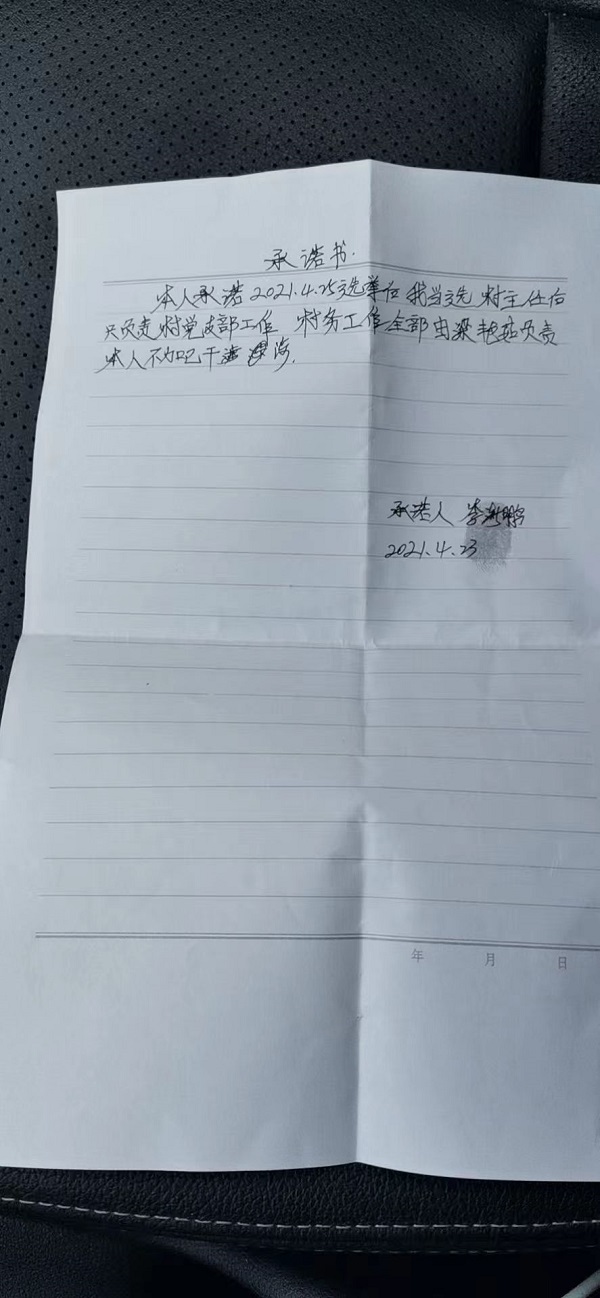 承诺书.
本人承诺2021.4.25选举后我当选村主任后
只负责村党支部工作 村务工作全部由梁艳茹负责
本人不为已干
承诺人 李新鹏
2021.4.23
年 月 日